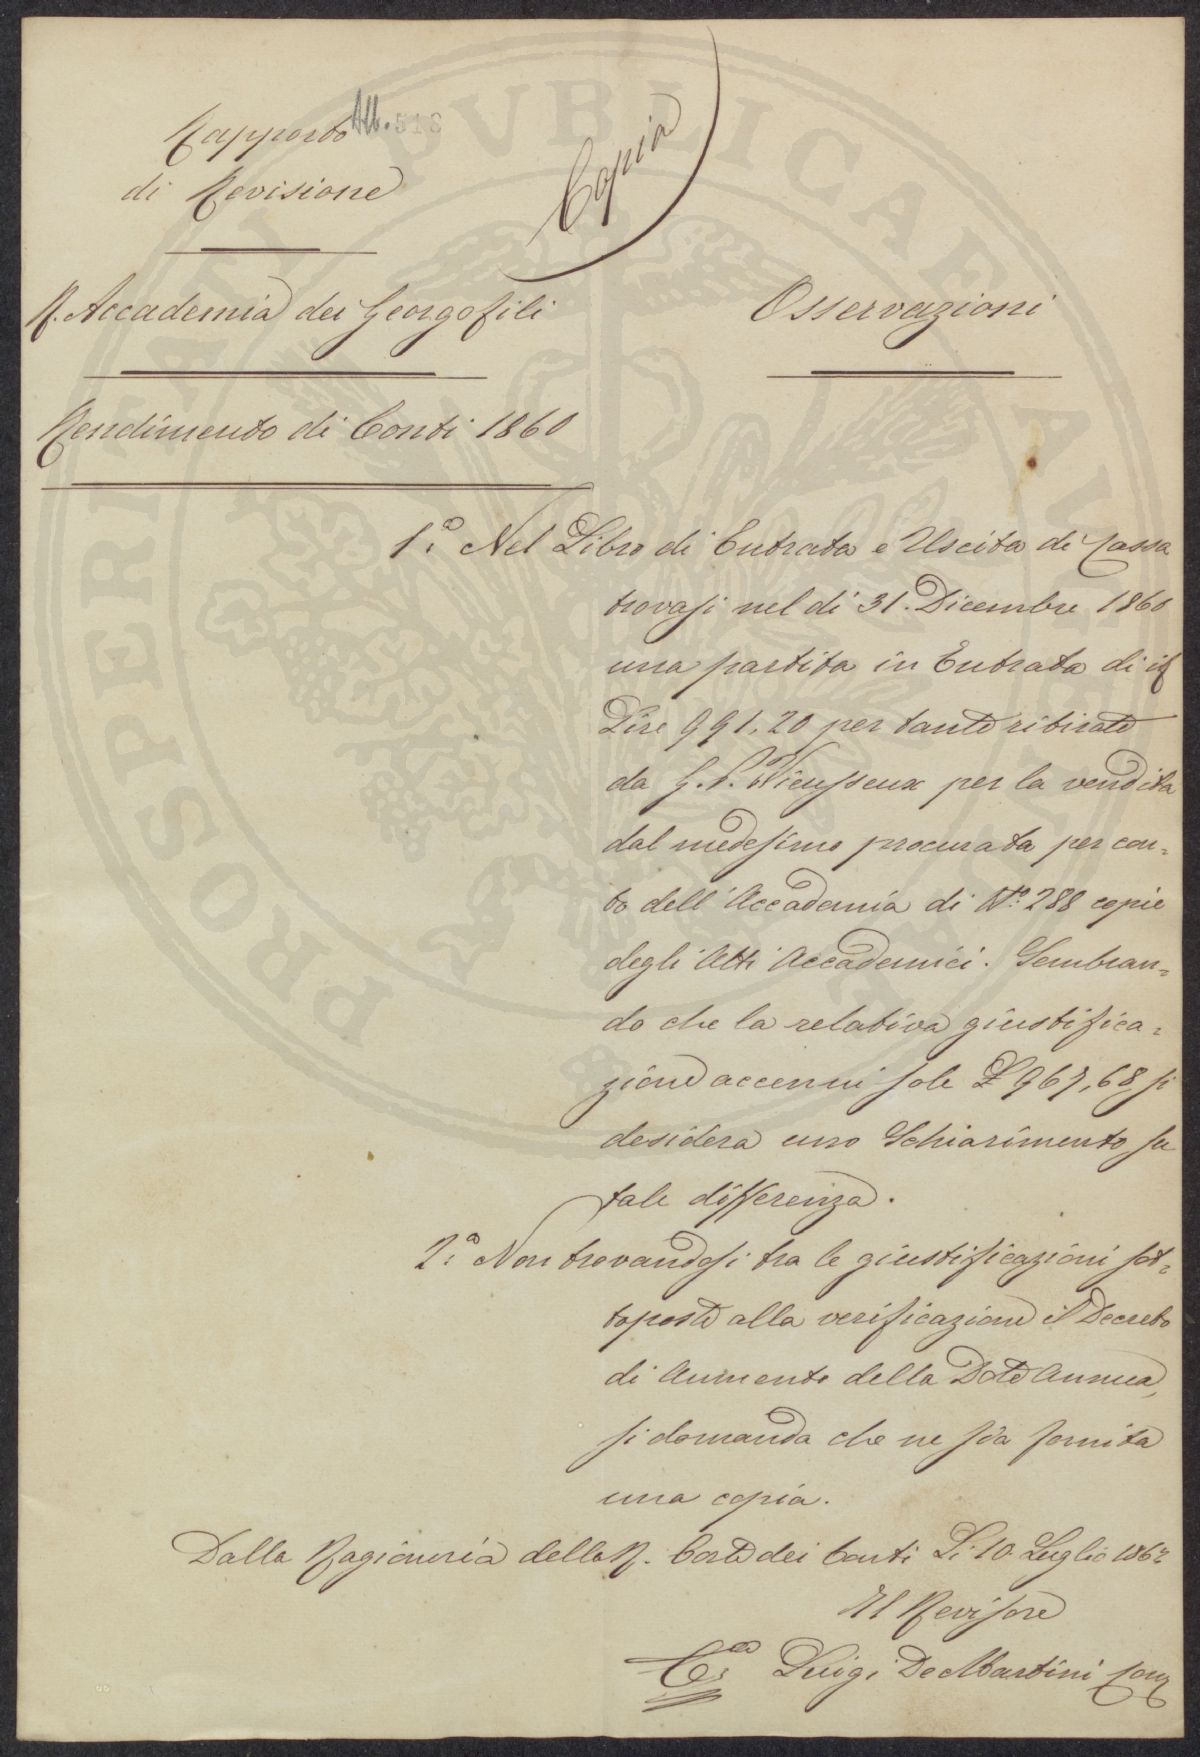 All. 518
Rapporto
di Revisione
Copia
R. Accademia dei Georgofili
Osservazioni
Rendimento di Conti 1860
1.° Nel Libro di Entrata e Uscita di Cassa
trovasi nel dì 31. Dicembre 1860
una partita in Entrata di
Lire 991,20 per tante ritirate
da G. P. Vieusseux per la vendita
dal medesimo procurata per con=
to dell'Accademia di N.° 288 copie
degli Atti Accademici. Sembran=
do che la relativa giustifica=
zione accenni sole £ 967,68, si
desidera uno Schiarimento su
tale differenza.
2.° Non trovandosi tra le giustificazioni sot=
toposte alla verificazione il Decreto
di Aumento della Dote annua,
si domanda che ne sia fornita
una copia.
Dalla Ragioneria della R. Corte dei Conti Li 10 Luglio 1862
Il Revisore
Luigi De Martini
PROSPERITATI PUBLICAE AUGENDAE